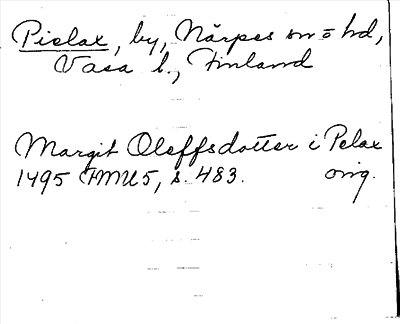 Pielax, by, Närpes sn o hd,
Vasa l., Finland
Margit Oleffsdotter i Pelax
1495 FMU 5, s. 483. orig.